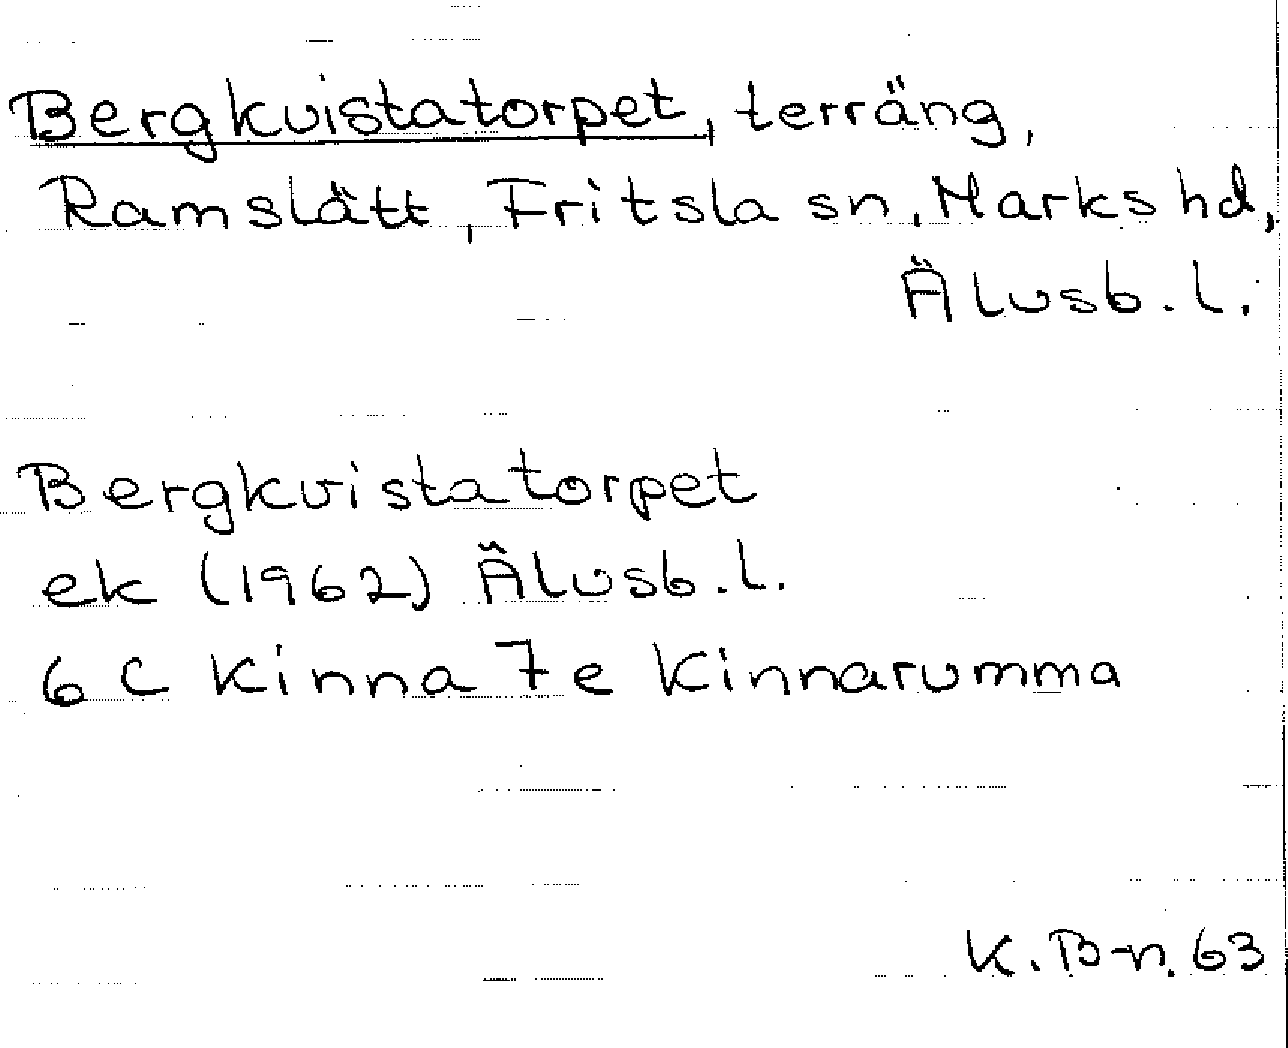 Bergkvistatorpet, terräng,
Ramslätt, Fritsla sn, Marks hd,
Älvsb. l.
Bergkvistatorpet
ek (1962) Älvsb. l.
6 C Kinna 7 e Kinnarumma
K. B-n. 63